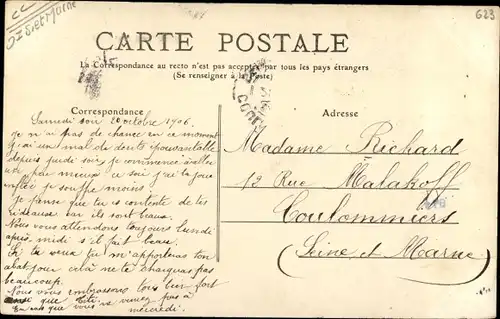 623
Seine et Marne
CARTE POSTALE
La Correspondance au recto n'est pas acceptée par tous les pays étrangers
(Se renseigner à la Poste)
Correspondance
Adresse
Samedi soir 20 octobre 1906
Je n'ai pas de chance en ce moment
j'ai un mal de dents épouvantable
depuis jeudi soir, je commence à aller
un peu mieux ce soir j'ai la joue
enflée je souffre moins
Je pense que tu es contente de tes
rideaux car ils sont beaux.
Nous vous attendons toujours lundi
après midi s'il fait beau.
Si tu veux tu m'apporteras ton
abat jour si cela ne te charge pas
beaucoup.
Nous vous embrassons tous bien fort
ainsi que Titi
En cas que vous ne veniez pas à
mercredi.
Madame Richard
12 Rue Malakoff
Coulommiers
(Seine et Marne)